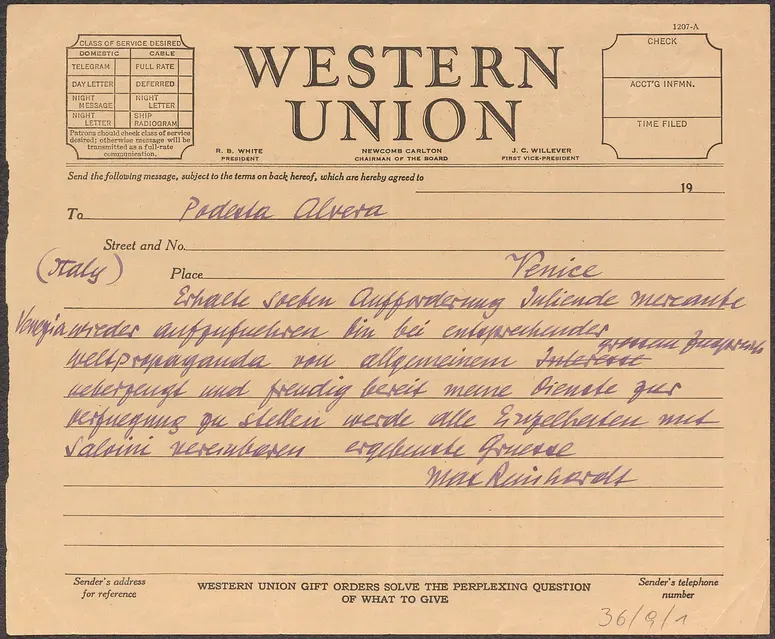 1207-A
CLASS OF SERVICE DESIRED
DOMESTIC CABLE
TELEGRAM FULL RATE
DAY LETTER DEFERRED
NIGHT MESSAGE NIGHT LETTER
NIGHT LETTER SHIP RADIOGRAM
Patrons should check class of service
desired; otherwise message will be
transmitted as a full-rate
communication.
WESTERN
UNION
R. B. WHITE
PRESIDENT
NEWCOMB CARLTON
CHAIRMAN OF THE BOARD
J. C. WILLEVER
FIRST VICE-PRESIDENT
CHECK
ACCT'G INFMN.
TIME FILED
Send the following message, subject to the terms on back hereof, which are hereby agreed to
19
To Podesta Alvera
Street and No.
(Italy) Place Venice
Erhalte soeben Aufforderung Juliende mercante
Venezia wieder aufzufuehren bin bei entsprechender
weltpropaganda von allgemeinem Interesse grossem Zuspruch
ueberzeugt und freudig bereit meine Dienste zur
verfuegung zu stellen werde alle Einzelheiten mit
Salvini vereinbaren ergebenste Gruesse
Max Reinhardt
Sender's address
for reference
WESTERN UNION GIFT ORDERS SOLVE THE PERPLEXING QUESTION
OF WHAT TO GIVE
Sender's telephone
number
36/9/1